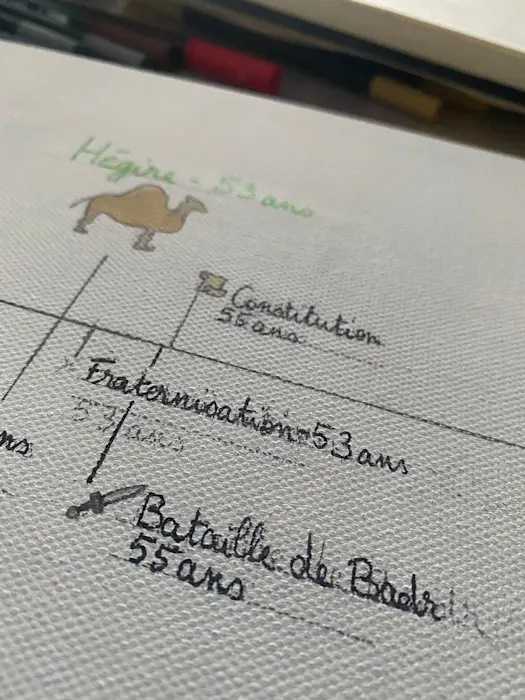 Hégire - 53 ans
Constitution
55 ans
Fraternisation 53 ans
53 ans
ns
Bataille de Badr
55 ans